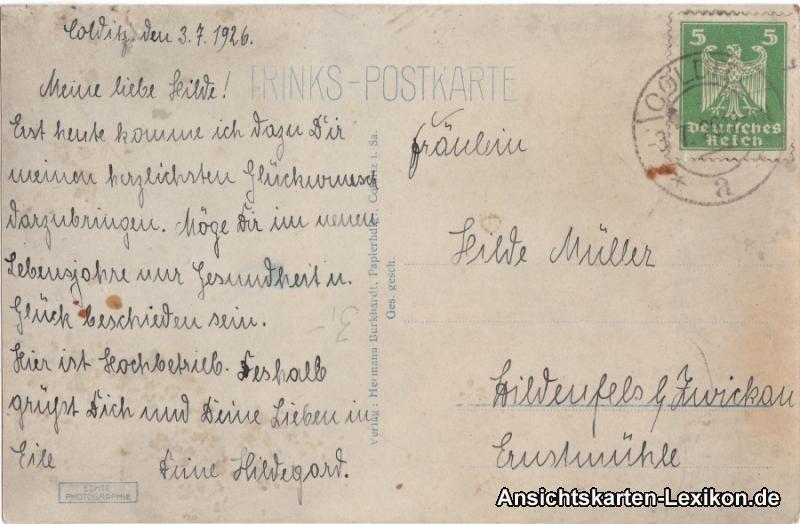 Colditz, den 3.7.1926.
Meine liebe Hilde!
Erst heute komme ich dazu Dir
meinen herzlichsten Glückwunsch
darzubringen. Möge Dir im neuen
Lebensjahre nur Gesundheit u.
Glück beschieden sein.
Hier ist Hochbetrieb. Deshalb
grüßt Dich und Deine Lieben in
Eile Deine Hildegard.
ECHTE
PHOTOGRAPHIE
TRINKS-POSTKARTE
Verlag: Hermann Burkhardt, Papierhdlg., Colditz i. Sa.
Ges. gesch.
3,-
5 5
Deutsches
Reich
COLD
a
Fräulein
Hilde Müller
Wildenfels b/Zwickau
Ernstmühle
Ansichtskarten-Lexikon.de